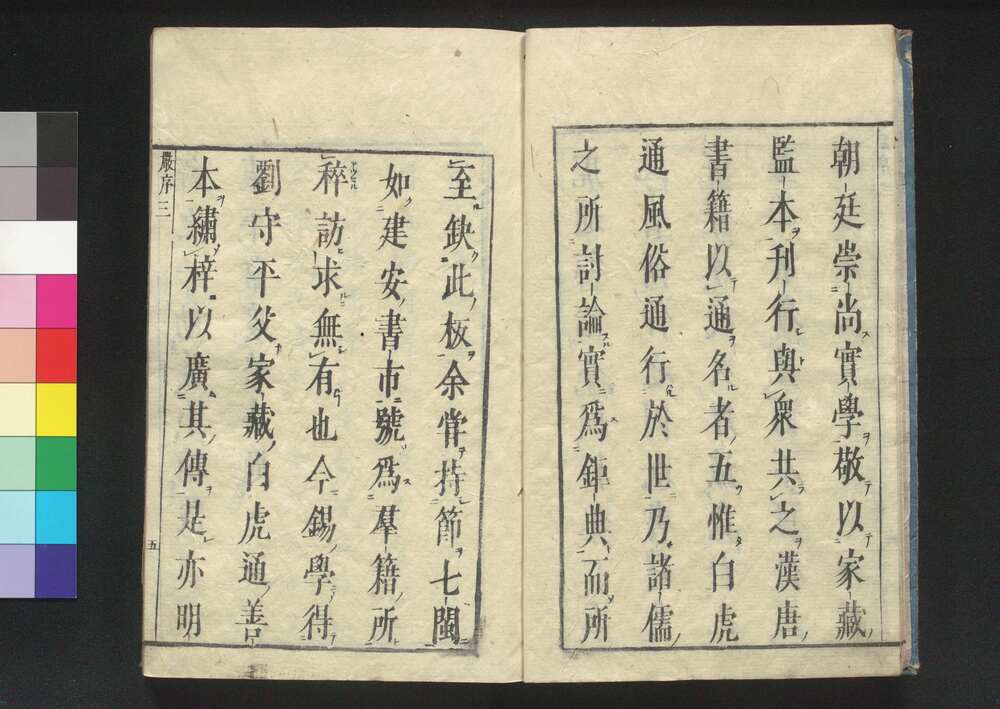 朝廷崇尚實學敬以家藏
監本刊行與衆共之漢唐
書籍以通名者五惟白虎
通風俗通行於世乃諸儒
之所討論實爲鉅典而所
至缺此板余嘗持節七閩
如建安書市號爲羣籍所
稡訪求無有也今錫學得
劉守平父家藏白虎通善
本繡梓以廣其傳是亦明
嚴序三
五